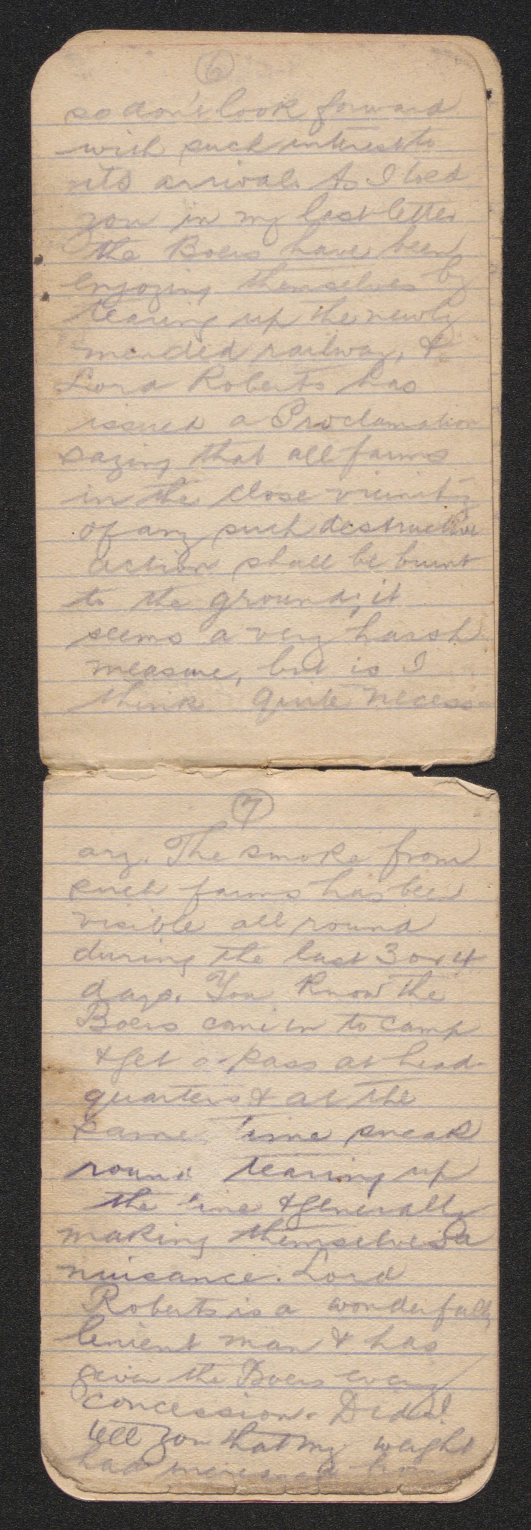 6
so don't look forward
with such interest to
its arrival. As I told
you in my last letter
the Boers have been
enjoying themselves by
tearing up the newly
mended railway, &
Lord Roberts has
issued a Proclamation
saying that all farms
in the close vicinity
of any such destructive
action shall be burnt
to the ground, it
seems a very harsh
measure, but is I
think quite necess-
7
ary. The smoke from
such farms has been
visible all round
during the last 3 or 4
days. You know the
Boers come in to camp
& get a pass at head-
quarters & at the
same time sneak
round tearing up
the line & generally
making themselves a
nuisance. Lord
Roberts is a wonderfully
lenient man & has
given the Boers every
concession. Did I
tell you that my weight
had increased